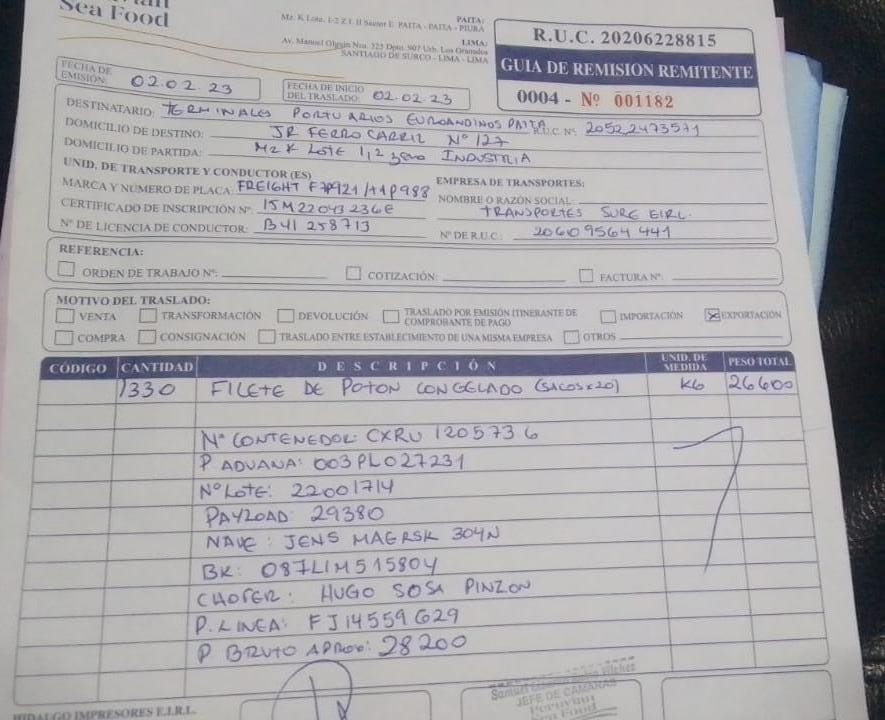 Sea Food
PAITA:
Mz. K Lote. 1-2 Z.I. II Sector E PAITA - PAITA - PIURA
LIMA:
Av. Manuel Olguin Nro. 325 Dpto. 907 Urb. Los Granados
SANTIAGO DE SURCO - LIMA - LIMA
R.U.C. 20206228815
GUIA DE REMISIÓN REMITENTE
0004 - Nº 001182
FECHA DE EMISIÓN: 02.02.23
FECHA DE INICIO DEL TRASLADO: 02.02.23
DESTINATARIO: TERMINALES PORTUARIOS EUROANDINOS PAITA R.U.C. Nº: 20522473571
DOMICILIO DE DESTINO: JR FERROCARRIL Nº 127
DOMICILIO DE PARTIDA: MZ K LOTE 1,2 INDUSTRIA
UNID. DE TRANSPORTE Y CONDUCTOR (ES)
MARCA Y NUMERO DE PLACA: FREIGHT F7P921/
CERTIFICADO DE INSCRIPCIÓN Nº: 15M22043236E
Nº DE LICENCIA DE CONDUCTOR: B41258713
EMPRESA DE TRANSPORTES:
NOMBRE O RAZÓN SOCIAL:
TRANSPORTES SURE EIRL.
Nº DE R.U.C: 20609564441
REFERENCIA:
ORDEN DE TRABAJO Nº: COTIZACIÓN: FACTURA Nº:
MOTIVO DEL TRASLADO:
VENTA TRANSFORMACIÓN DEVOLUCIÓN TRASLADO POR EMISIÓN ITINERANTE DE COMPROBANTE DE PAGO IMPORTACIÓN EXPORTACIÓN
COMPRA CONSIGNACIÓN TRASLADO ENTRE ESTABLECIMIENTO DE UNA MISMA EMPRESA OTROS
CÓDIGO CANTIDAD DESCRIPCIÓN UNID. DE MEDIDA PESO TOTAL
1330 FILETE DE POTON CONGELADO (SACOS x 20) KG 26600
Nº CONTENEDOR: CXRU 120573 6
P ADUANA: 003PL027231
Nº LOTE: 22001714
PAYLOAD: 29380
NAVE: JENS MAERSK 304N
BK: 087LIM515804
CHOFER: HUGO SOSA PINZON
P. LINEA: FJ14559629
P BRUTO APROX: 28200
JEFE DE CAMARAS
Peruvian
Sea Food
HIDALGO IMPRESORES E.I.R.L.